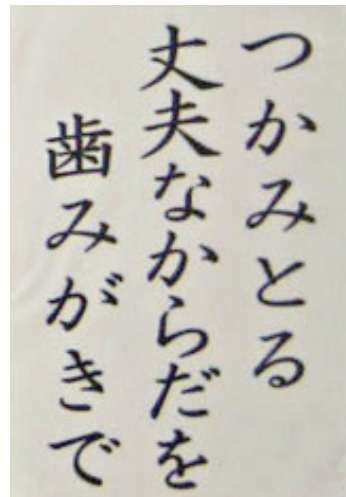 つかみとる
丈夫なからだを
歯みがきで